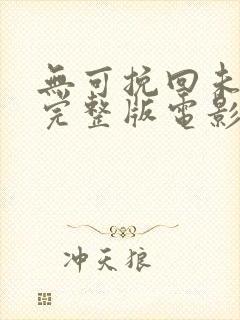 無可挽回未
完整版電影
冲天狼